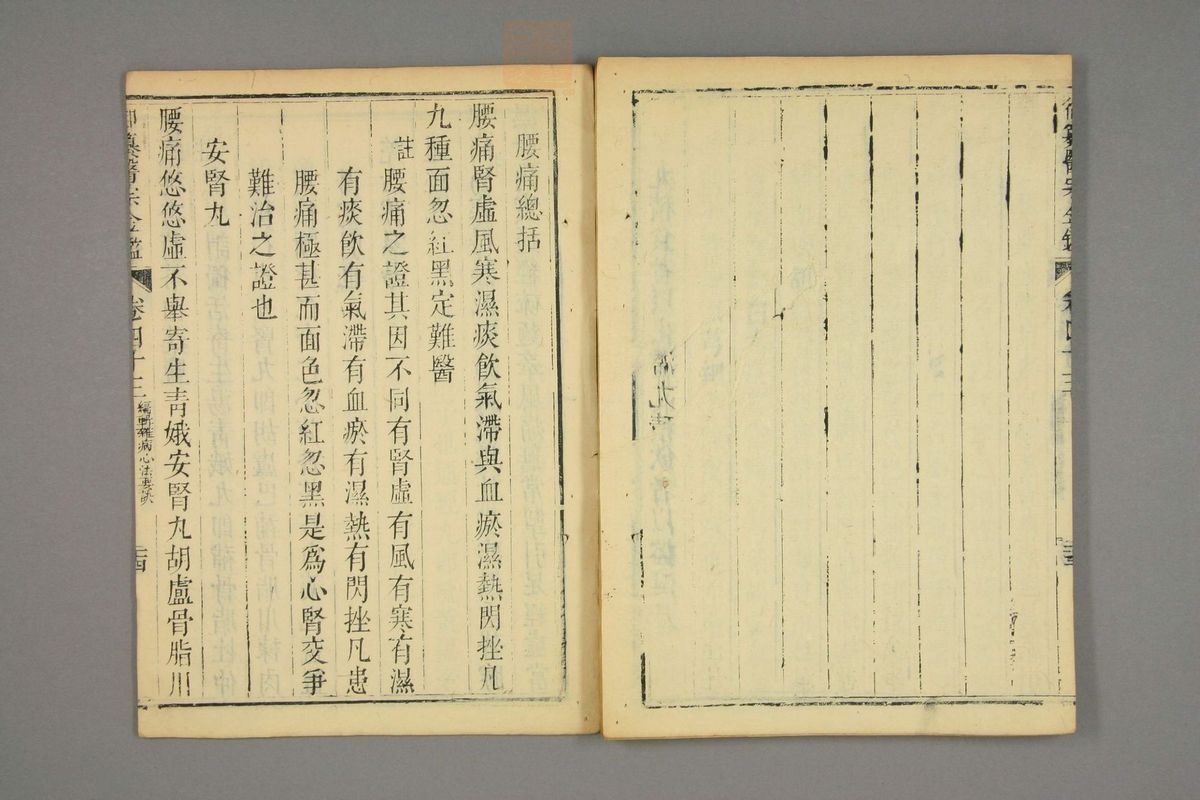 腰痛總括
腰痛腎虛風寒濕痰飲氣滯與血瘀濕熱閃挫凡
九種面忽紅黑定難醫
註腰痛之證其因不同有腎虛有風有寒有濕
有痰飲有氣滯有血瘀有濕熱有閃挫凡患
腰痛極甚而面色忽紅忽黑是爲心腎交爭
難治之證也
安腎丸
腰痛悠悠虛不舉寄生靑娥安腎丸胡盧骨脂川
御纂醫宗金鑑
卷四十三
編輯雜病心法要訣